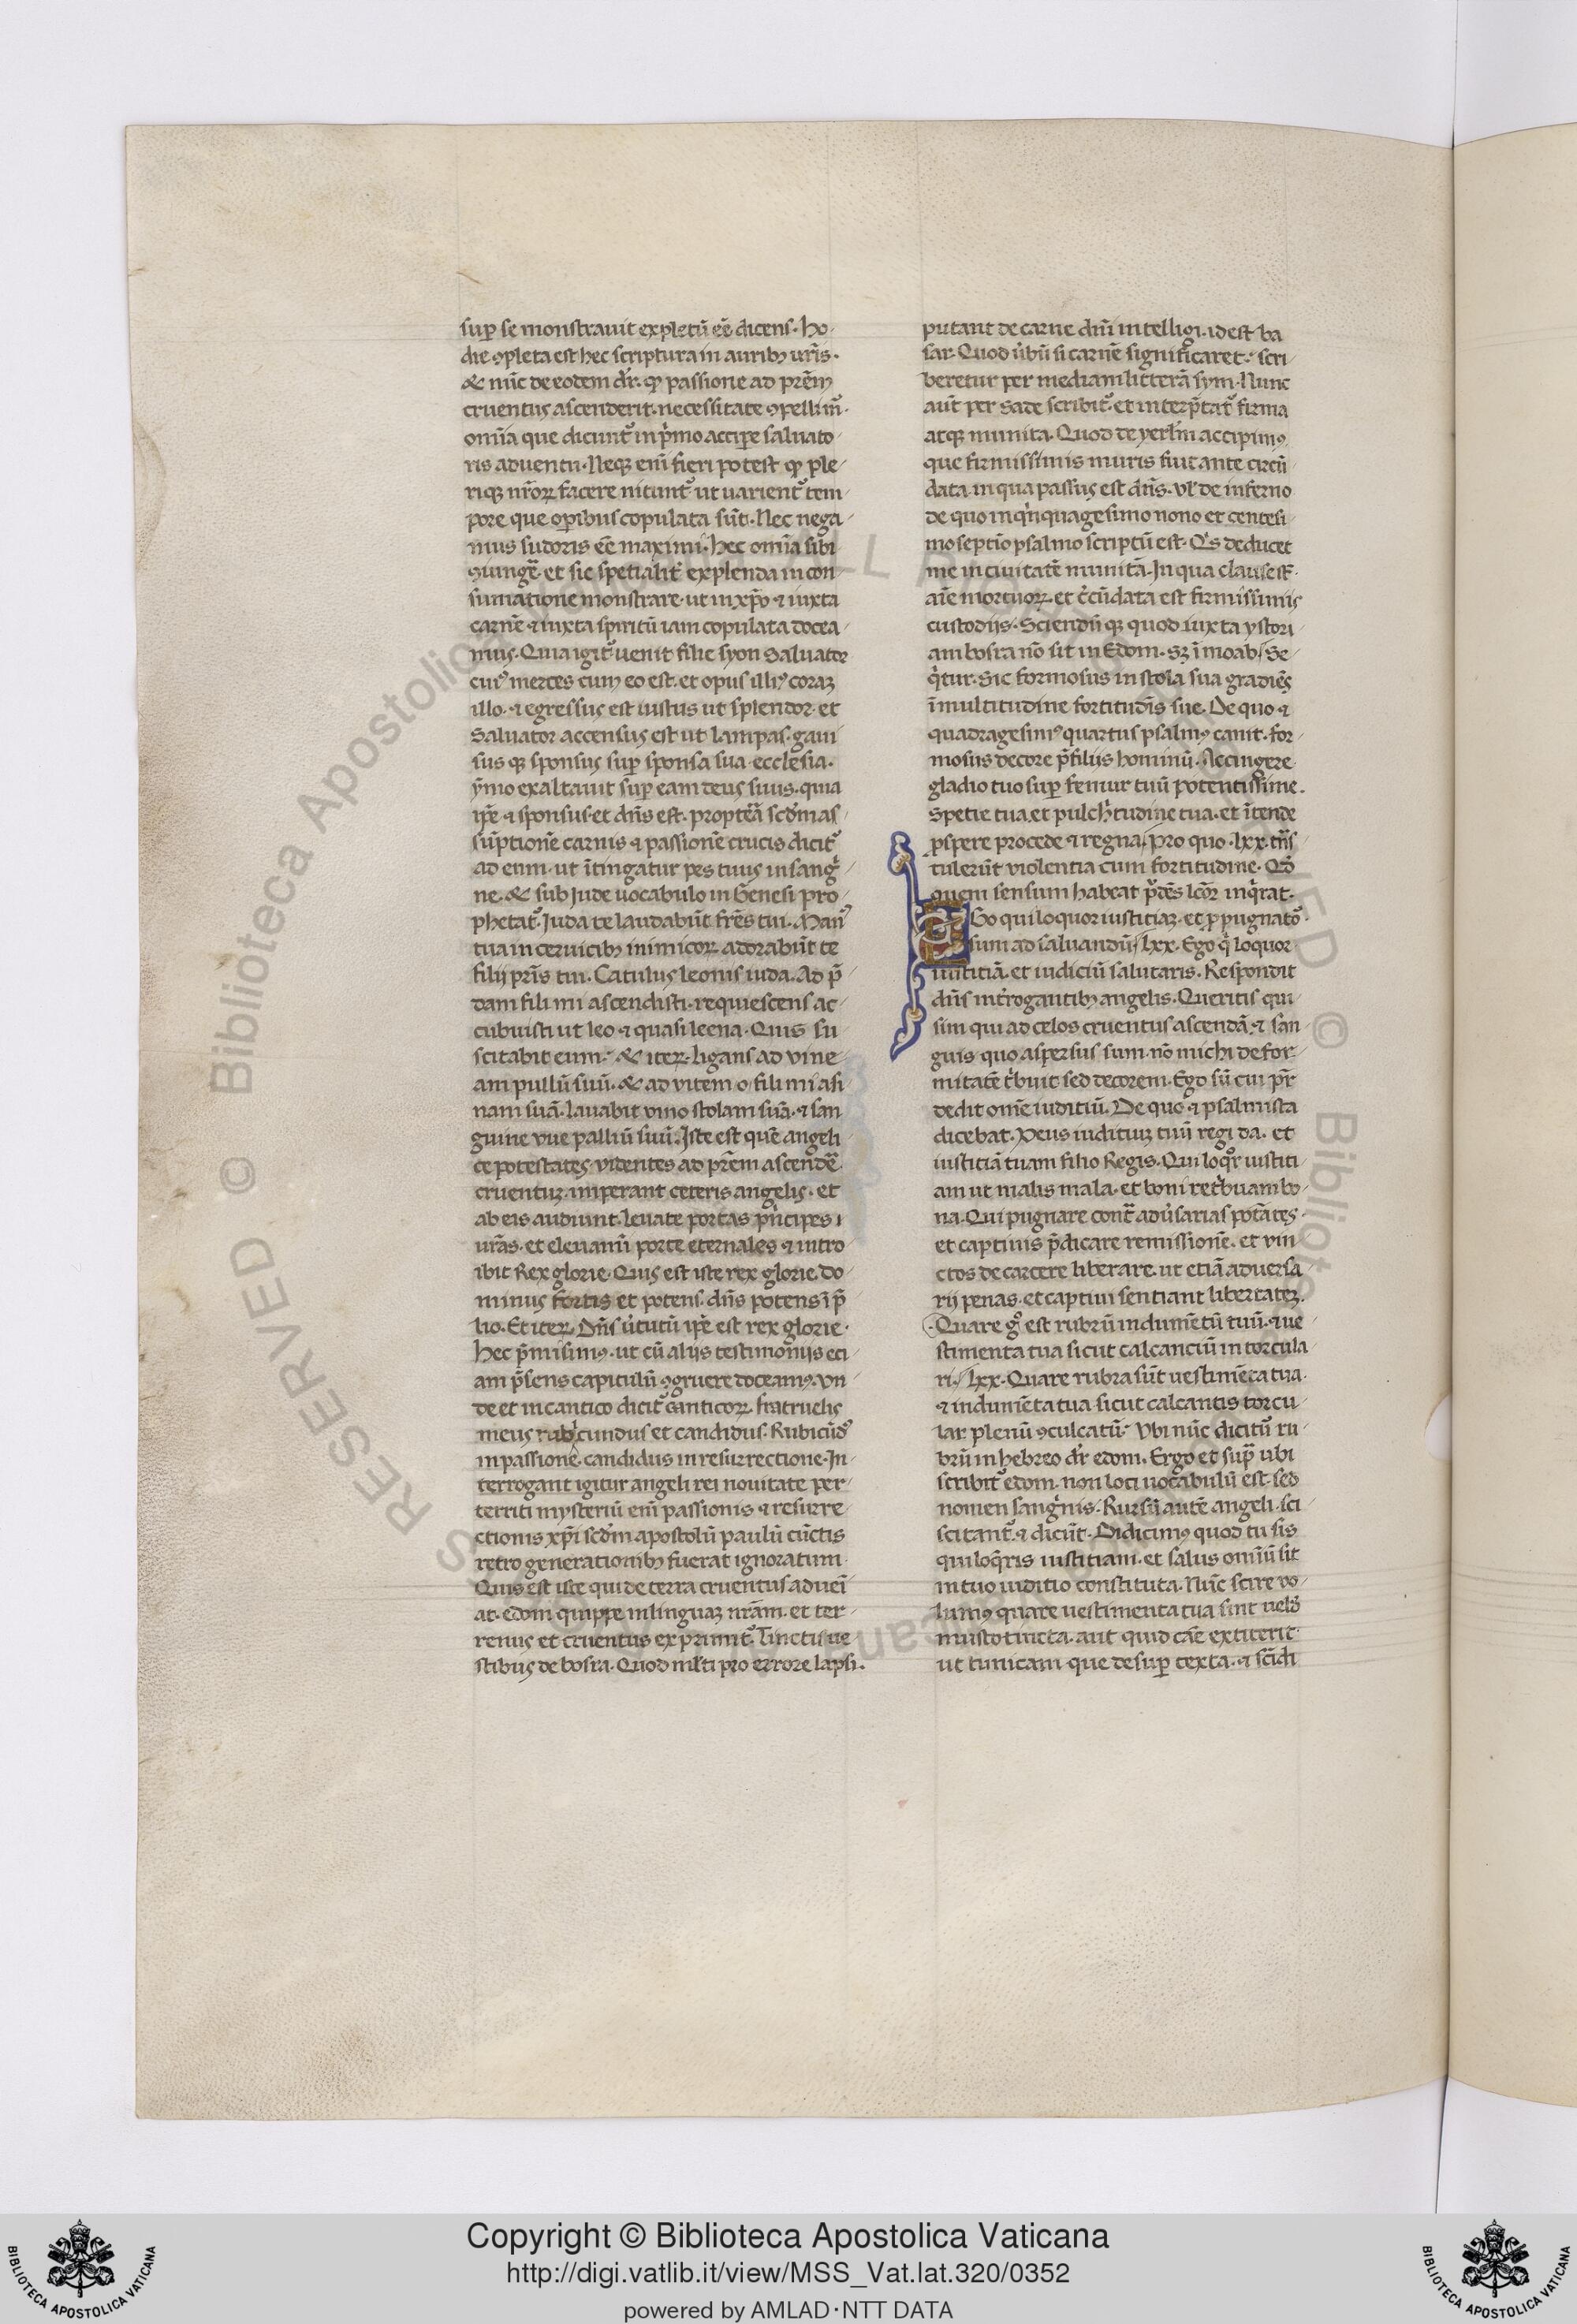 sup̱ se monstrauit expletũ eẽ dicens· ho-
die ꝯpleta est hec scriptura in auribꝫ ur̃is·
& nũc de eodem dr̃· ꝙ passione ad pr̃em
cruentus ascenderit· necessitate ꝯpellim̃·
om̃ia que dicunt᷑ in pͥmo accip̱e saluato-
ris aduentu· Neqꝫ eni᷑ fieri potest ꝙ ple-
riqꝫ nr̃oꝝ facere nitunt᷑ ut uarient᷑ tem-
pore que op̱ibus copulata sũt· Nec nega-
mus sudoris eẽ maximi· hec om̃ia sibi
ꝯiungẽ· et sic spetialit᷑ explenda in con-
sumatione monstrare· ut in xp̃o ⁊ iuxta
carnẽ ⁊ iuxta spiritũ iam copulata docea-
mus· Quia igit᷑ uenit filie syon Saluator
cuiꝰ merces cum eo est· et opus illiꝰ coraꝫ
illo· ⁊ egressus est iustus ut splendor· et
Saluator accensus est ut lampas· gaui
sus qꝫ sponsus sup̱ sponsa sua ecclesia·
ymo exaltauit sup̱ eam deus suus· quia
ip̃e ⁊ sponsus· et dñs est· propterã scd̃m as-
sũptionẽ carnis ⁊ passionẽ crucis dicit᷑
ad eum· ut ĩtingatur pes tuus in sangͥ-
ne· & sub Jude uocabulo in Genesi pro-
phetat᷑· Juda te laudabũt fr̃es tui· Manꝰ
tua in ceruicibꝫ inimicoꝝ adorabũt te
filij pr̃is tui· Catulus leonis iuda· Ad p̃-
dam fili mi ascendisti· requiescens ac-
cubuisti ut leo ⁊ quasi leena· Quis su-
scitabit eum· & iteꝝ· ligans ad vine-
am pullũ suũ· & ad vitem o fili mi asi
nam suã· lauabit vino stolam suã· ⁊ san
guine vue palliũ suũ· Iste est quẽ angeli
ce potestates videntes ad pr̃em ascendẽ·
cruentuꝫ· imperant ceteris angelis· et
ab eis audiunt· leuate portas pͥncipes i
ur̃as· et eleuami᷑ porte eternales ⁊ intro
ibit Rex glorie· Quis est iste rex glorie· do-
minus fortis et potens· dñs potens ĩ p̃-
lio· Et iteꝝ· Dñs ũtutũ ip̃e est rex glorie·
hec p̃misimꝰ· ut cũ alijs testimonijs eci-
am p̃sens capitulũ ꝯgruere doceamꝰ· Vn
de et in cantico dicit᷑ canticoꝝ· fratruelis
meus rubͥcundus et candidus· Rubicũdꝰ
in passione· candidus in resurrectione· In-
terrogant igitur angeli rei nouitate per-
territi mysteriũ eni᷑ passionis ⁊ resurre-
ctionis xp̃i scd̃m apostolũ paulũ cũctis
retro generationibꝫ fuerat ignoratum·
Quis est iste qui de terra cruentus aduei᷑
at· edom quippe in linguaꝫ nr̃am· et ter-
renus et cruentus exprimit᷑· Tinctis ue
stibus de bosra· Quod ml̃ti pro errore lapsi·
putant de carne dñi intelligi· idest ba
sar· Quod ũbũ si carnẽ significaret· scri-
beretur per mediam litterã sym· Nunc
aũt per Sade scribit᷑· et interp̃tat᷑ firma
atqꝫ munita· Quod de yerl̃m accipimꝰ
que firmissimis muris fuit ante circũ
data· in qua passus est dñs· vl̃ de inferno
de quo in qͥnquagesimo nono et centesi-
mo septĩo psalmo scriptũ est· Qͥs deducet
me in ciuitatẽ munitã· In qua clause st̃·
aĩe mortuoꝝ· et cͥcũdata est firmissimis
custodijs· Sciendũ qꝫ quod iuxta ystori-
am bosra nõ sit in Edom· Sꝫ ĩ moab/ Se-
qͥtur· Sic formosus in stola sua gradiẽs
ĩ multitudine fortitudĩs sue· De quo ⁊
quadragesimꝰ quartus psalmꝰ canit· for-
mosus decore p̃ filijs hominũ· Accingere
gladio tuo sup̱ femur tuũ potentissime·
Spetie tua et pulchͥtudine tua· et ĩtende
ꝓspere procede ⁊ regna· Pro quo· lxx· tñs
tulerũt violentia cum fortitudine· Qd̃
quem sensum habeat pͥdẽs lc̃or inqͥrat·
EGo qui loquor iustitiaꝫ· et ꝓpugnatoꝰ·
sum ad saluandũ/ lxx· Ego qͥ loquor
iustitiã et iudiciũ salutaris· Respondit
dñs int̃rogantibꝫ angelis· Queritis qui
sim qui ad celos cruentus ascendã· ⁊ san
guis quo aspersus sum· nõ michi defor-
mitatẽ tͥbuit sed decorem· Ego sũ cui pr̃
dedit om̃e iuditiũ· De quo ⁊ psalmista
dicebat· Deus iudituꝫ tuũ regi da· et
iustitiã tuam filio Regis· Qui loqͦr iustiti-
am ut malis mala· et boni retͥbuam bo-
na· Qui pugnare contͣ adũsarias potãtes·
et captiuis p̃dicare remissionẽ· et vin-
ctos de carcere liberare· ut etiã aduersa
rij penas· et captiui sentiant libertateꝫ·
Quare gͦ est rubrũ indumẽtũ tuũ· ⁊ ue
stimenta tua sicut calcanciũ in torcula
ri· / lxx· Quare rubra sũt uestimẽta tua·
⁊ indumẽta tua sicut calcantis torcu-
lar plenũ ꝯculcatũ· Vbi nũc dicitũ ru
brũ in hebreo dr̃ edom· Ergo et supͣ ubi
scribit᷑ edom· non loci uocabulũ est· sed
nomen sangͥnis· Rursũ autẽ angeli· sci
scitant᷑· ⁊ dicũt· Didicimꝰ quod tu sis
qui loqͣris iustitiam· et salus om̃iũ sit
in tuo iuditio constituta· Nũc scire vo-
lumꝰ quare uestimenta tua sint uelud
musto tincta· aut quid cãe extiterit·
ut tunicam que desup̱ texta· ⁊ scĩdi
Copyright © Biblioteca Apostolica Vaticana
http://digi.vatlib.it/view/MSS_Vat.lat.320/0352
powered by AMLAD·NTT DATA